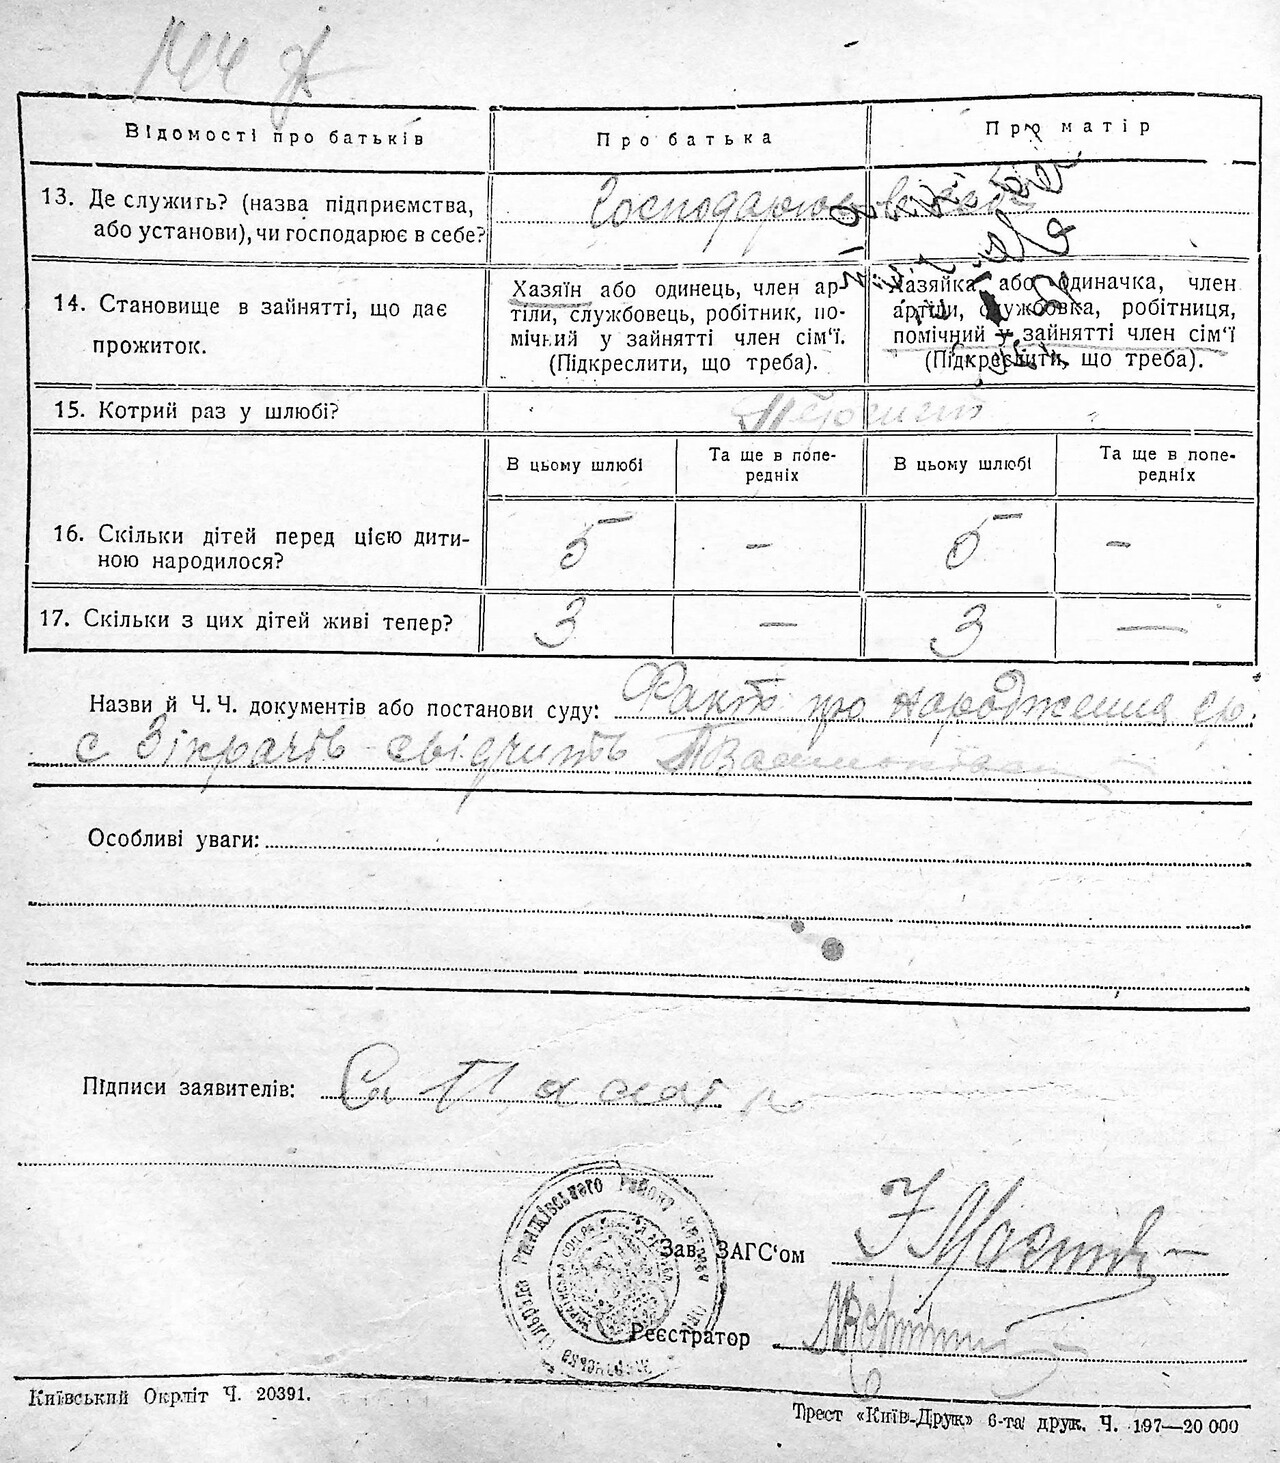 Відомості про батьків
Про батька
Про матір
13. Де служить? (назва підприємства,
або установи), чи господарює в себе?
14. Становище в зайнятті, що дає
прожиток.
Хазяїн або одинець, член ар-
тіли, службовець, робітник, по-
мічний у зайнятті член сім'ї.
(Підкреслити, що треба).
Хазяйка або одиначка, член
артіли, службовка, робітниця,
помічний у зайнятті член сім'ї
(Підкреслити, що треба).
15. Котрий раз у шлюбі?
В цьому шлюбі
Та ще в попе-
редніх
В цьому шлюбі
Та ще в попе-
редніх
16. Скільки дітей перед цією дити-
ною народилося?
5 — 5 —
17. Скільки з цих дітей живі тепер?
3 — 3 —
Назви й Ч. Ч. документів або постанови суду: Факт про народження
с Зікрачів свідчить
Особливі уваги:
Підписи заявителів:
Зав. ЗАГС'ом
Реєстратор
Київський Окрліт Ч. 20391.
Трест «Київ-Друк» 6-та друк. Ч. 197—20 000